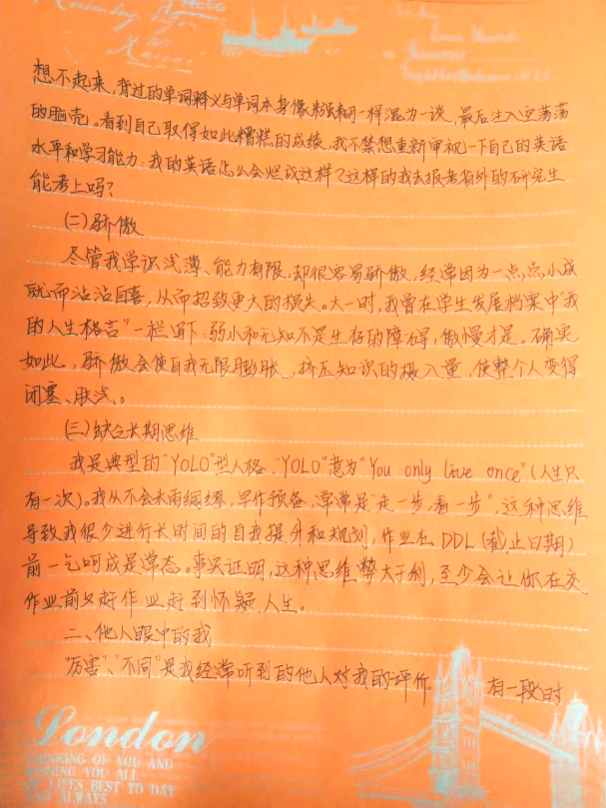 想不起来,背过的单词释义与单词本身像浆糊一样混为一谈,最后注入空荡荡
的脑壳。看到自己取得如此糟糕的成绩,我不禁想重新审视一下自己的英语
水平和学习能力:我的英语怎么会烂成这样?这样的我去报考省外的研究生
能考上吗?
(二)骄傲
尽管我学识浅薄、能力有限,却很容易骄傲,经常因为一点点小成
就而沾沾自喜,从而招致更大的损失。大一时,我曾在学生发展档案中"我
的人生格言"一栏写下:弱小和无知不是生存的障碍,傲慢才是。确实
如此,骄傲会使自我无限膨胀,挤压知识的摄入量,使整个人变得
闭塞、肤浅。
(三)缺乏长期思维
我是典型的"YOLO"型人格,"YOLO"意为"You only live once"(人生只
有一次)。我从不会未雨绸缪,早作预备,常常是"走一步,看一步",这种思维
导致我很少进行长时间的自我提升和规划,作业在DDL(截止日期)
前一气呵成是常态。事实证明,这种思维弊大于利,至少会让你在交
作业前夕赶作业赶到怀疑人生。
二、他人眼中的我
"厉害"、"不同"是我经常听到的他人对我的评价 有一段时
London
THINKING OF YOU AND
WISHING YOU ALL
LIFE'S BEST TO DAY
AND ALWAYS